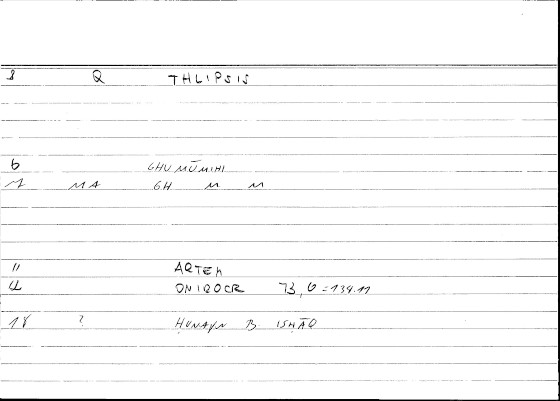 8 Q THLIPSIS
6 GHUMŪMIHI
1 MA GH M M
11 ARTEM
4 ONIROCR 73,6 = 139.11
18 ? ḤUNAYN B. ISḤĀQ